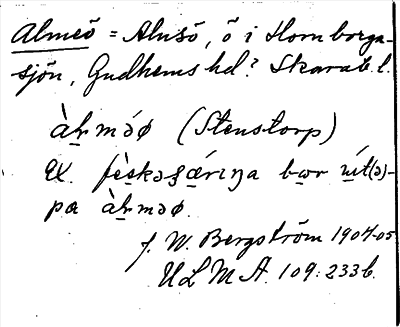 Almeö = Alnsö, ö i Hornborga-
sjön, Gudhems hd? Skarab. l.
àḥmǝ́ø (Stenstorp)
Ex. fèskǝʂǽrɩŋa bær ɯ́t(ǝ)-
pa àḥmǝø.
f. W. Bergström 1904-05
ULMA. 109:233b.